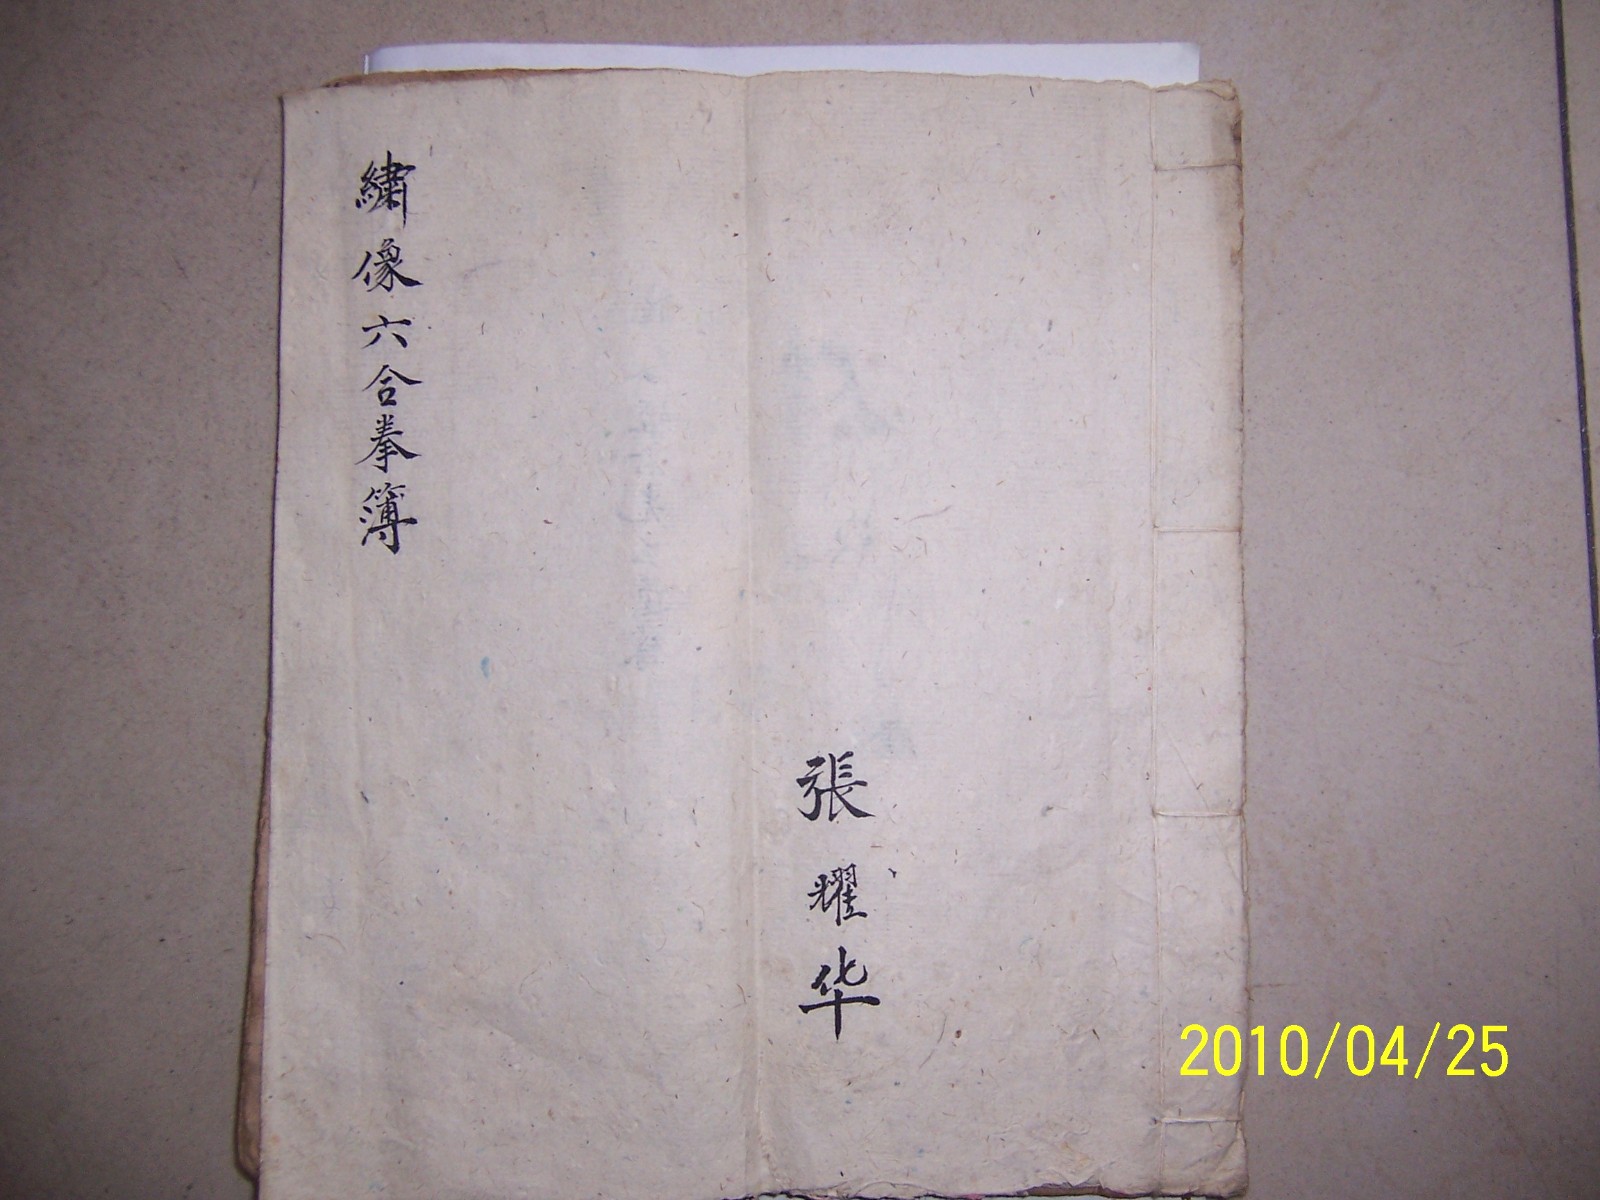 繡像六合拳簿
張耀华
2010/04/25